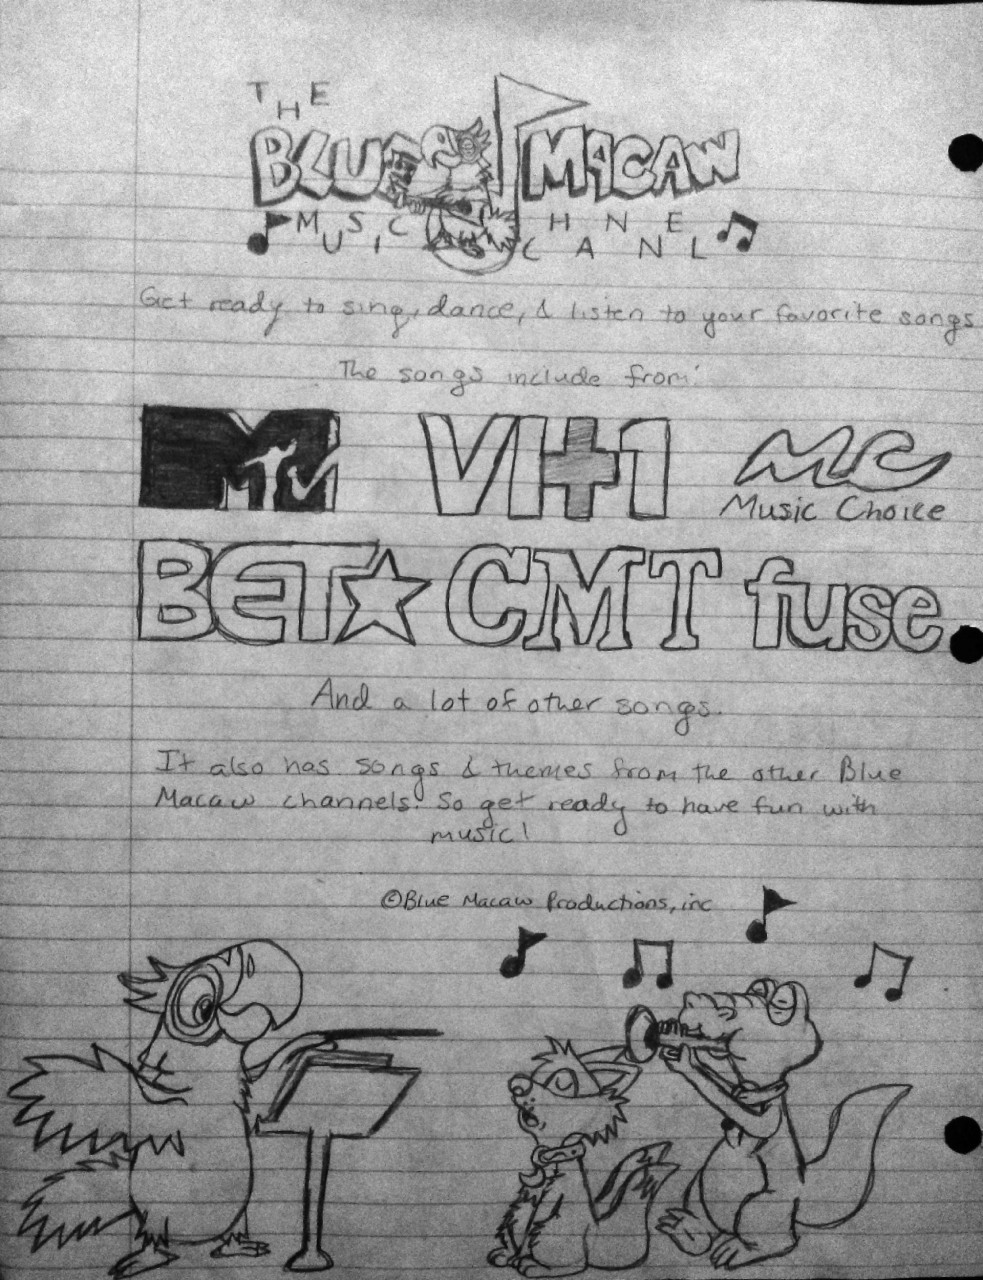 THE
BLUE MACAW
MUSIC CHANNEL
Get ready to sing, dance, & listen to your favorite songs
The songs include from:
MTV VH1 MC
Music Choice
BET CMT fuse
And a lot of other songs.
It also has songs & themes from the other Blue
Macaw channels. So get ready to have fun with
music!
©Blue Macaw Productions, inc